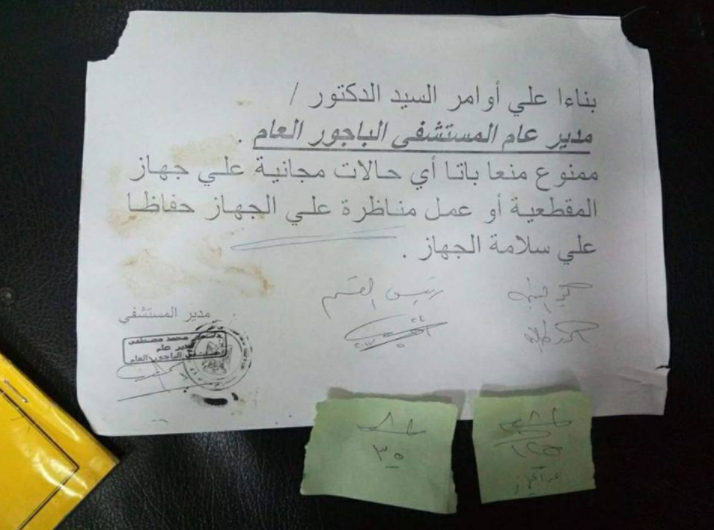 بناءا علي أوامر السيد الدكتور /
مدير عام المستشفى الباجور العام .
ممنوع منعا باتا أي حالات مجانية علي جهاز
المقطعية أو عمل مناظرة علي الجهاز حفاظا
علي سلامة الجهاز .
رئيس القسم
مدير المستشفى
محمد مصطفى
مدير عام
الباجور العام
٣٥